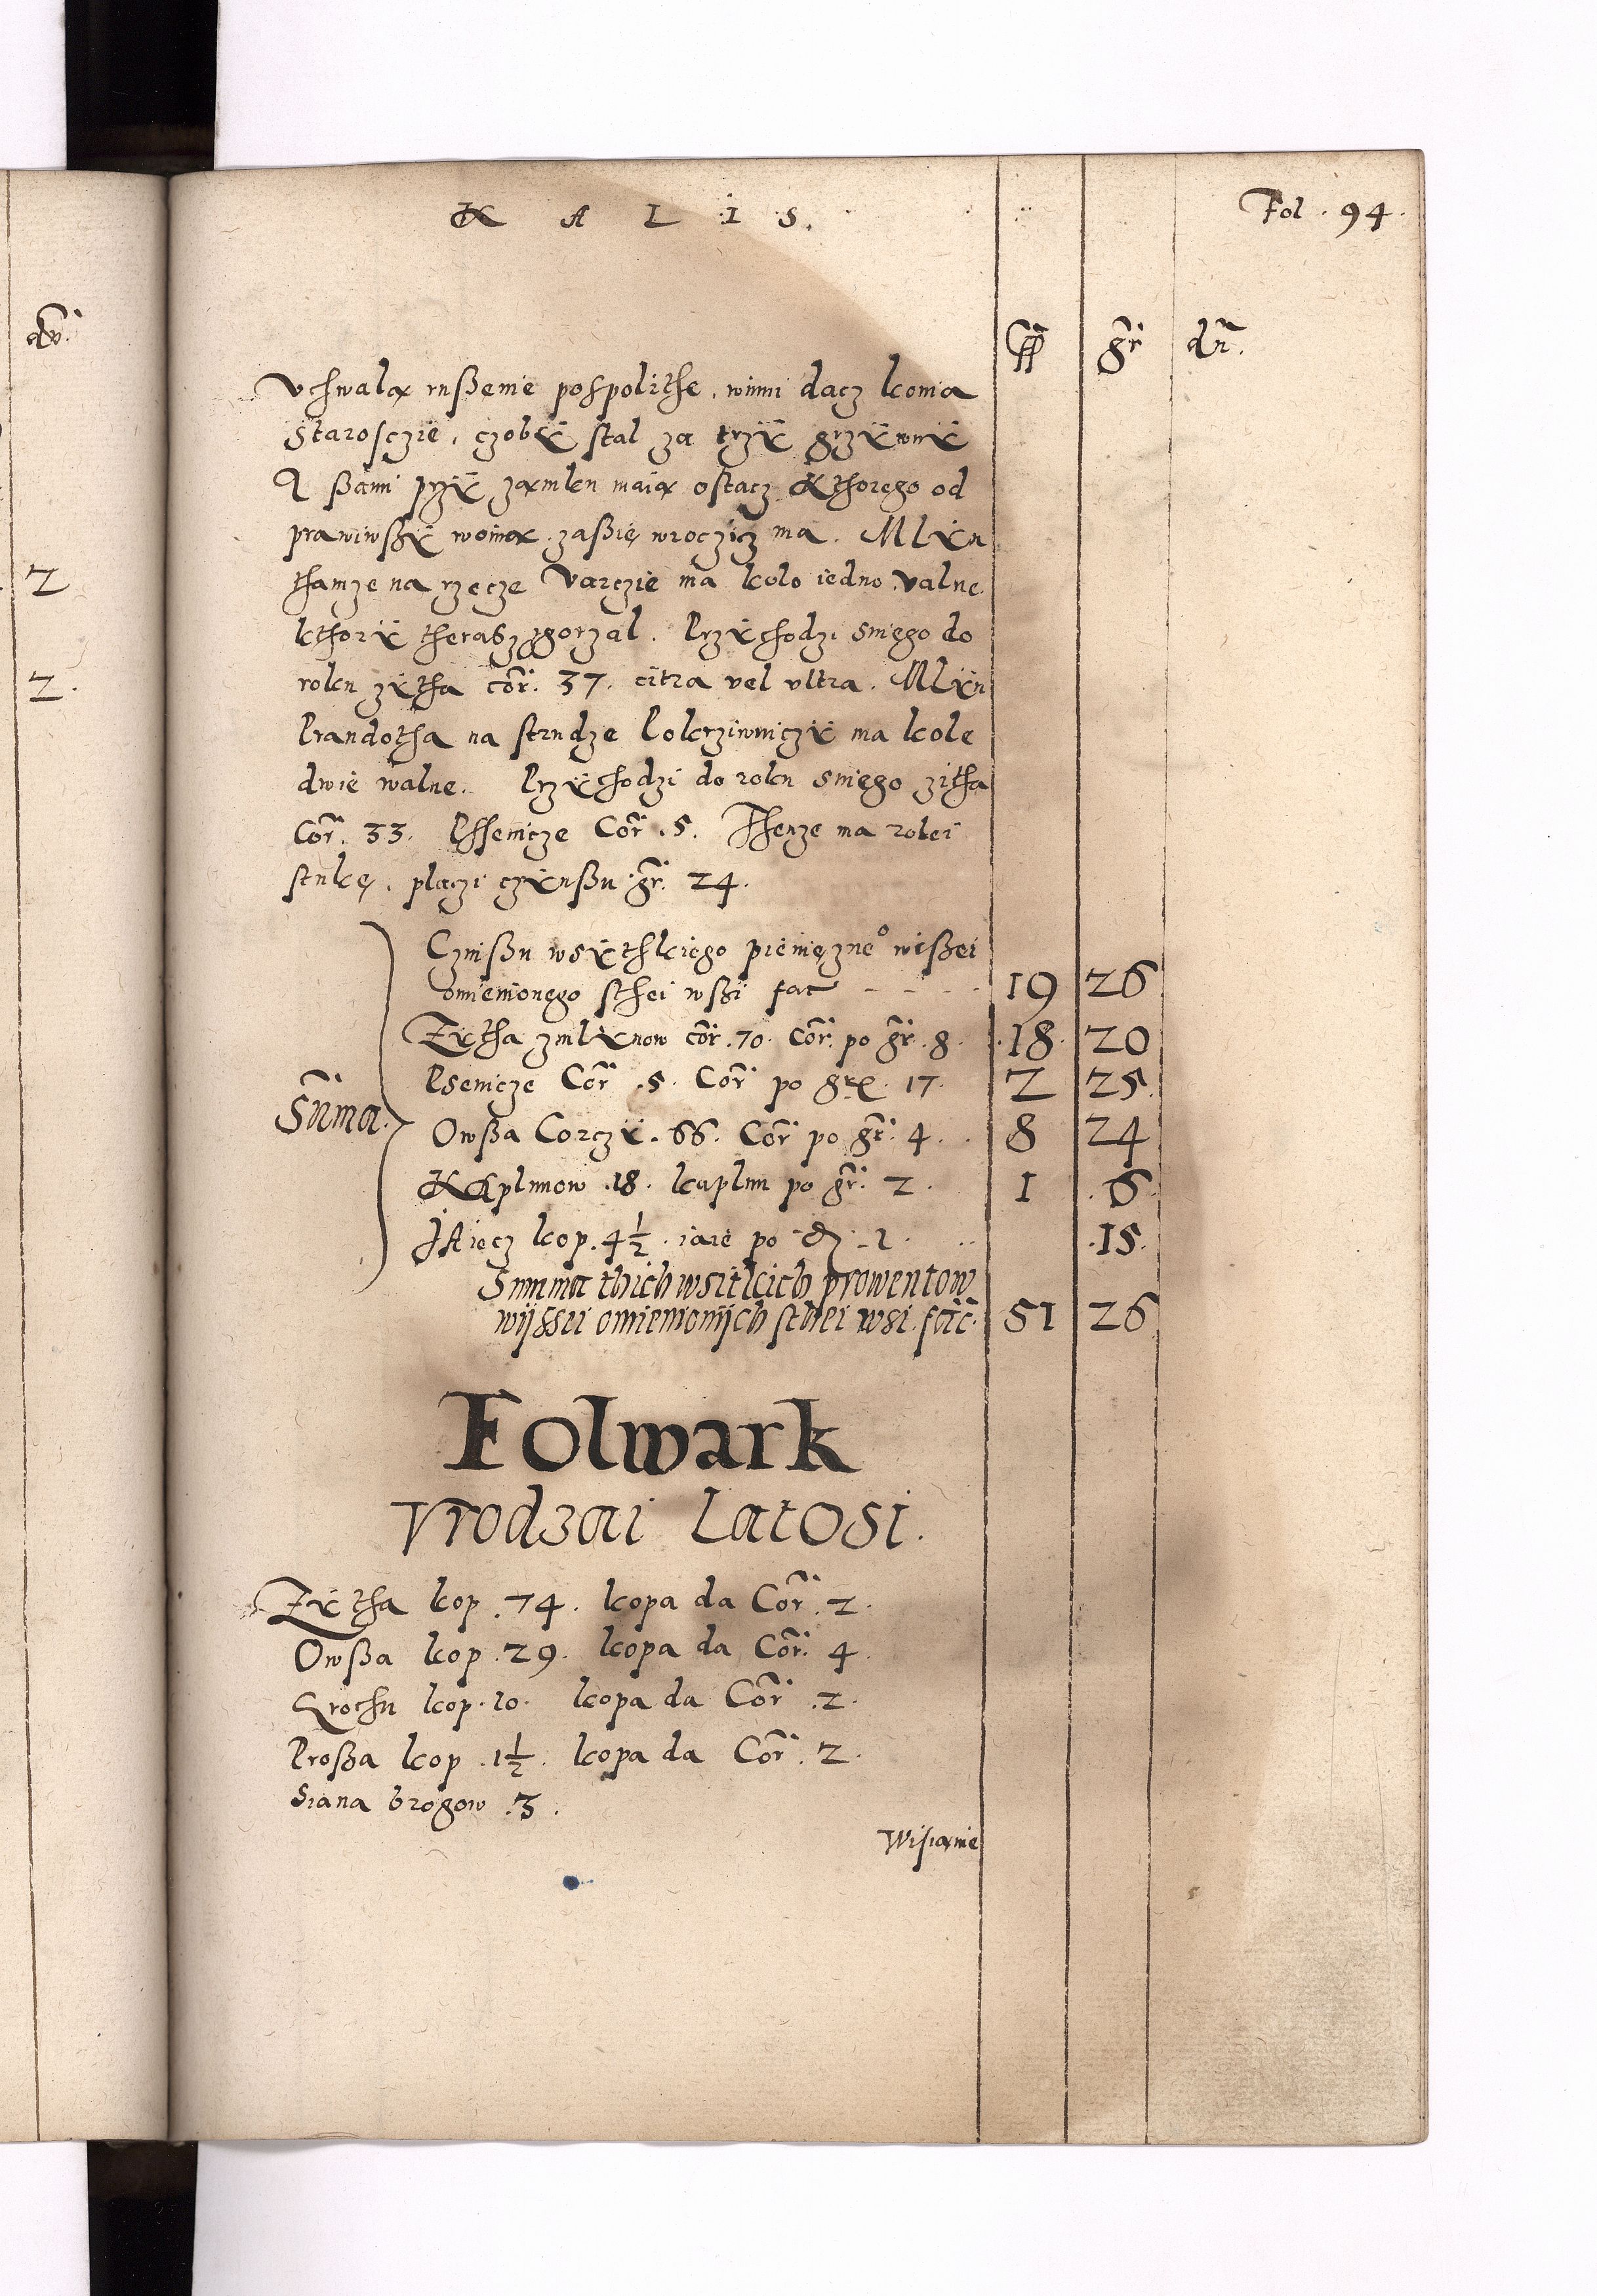 K A L I S.
Fol. 94.
gr dn.
Vchwalą rußenie pospolithe, winni dacz konia
Starosczie, czobÿ stal za trzÿ grzÿwnÿ
A ßami przÿ zamku maią ostacz kthorego od
prawiwßÿ woinę zaßię wroczicz ma. Mlÿn
thamze na rzecze Varczie ma kolo iedno valne.
kthorÿ therasz zgorzal. Przÿchodzi sniego do
roku zÿtha Cor. 37. citra vel vltra. Mlÿn
Prandotha na strudze Pokrziwniczÿ ma kole
dwie walne. Przÿchodzi do roku sniego zitha
Cor. 33. Pssenicze Cor. 5. Thenze ma rolei
stukę, placzi czÿnßu gr. 24.
Czinßu wsÿthkiego pienięzneo wißei
omienionego sthei wßi fac - - - 19 26
Zÿtha zmlÿnow cor. 70. Cor. po gr. 8. 18 20
Psenicze Cor. 5. Cor. po gr. 17. 2 25.
Suma. Owßa Corczÿ. 66. Cor. po gr. 4. 8 24
Kaplunow .18. kaplun po gr. 2. 1 6.
Jaiecz kop. 4½. iaie po 15.
Summa thich wsitkich prowentow
wijssei omienionijch sthei wsi. fac. 51 26
Folwark
Vrodzai Latosi.
Zÿtha kop. 74. kopa da Cor. 2.
Owßa kop. 29. kopa da Cor. 4.
Grochu kop. 10. kopa da Cor. 2.
Proßa kop. 1½. kopa da Cor. 2.
Siana brogow .3.
Wisianie
dn.
2
2.